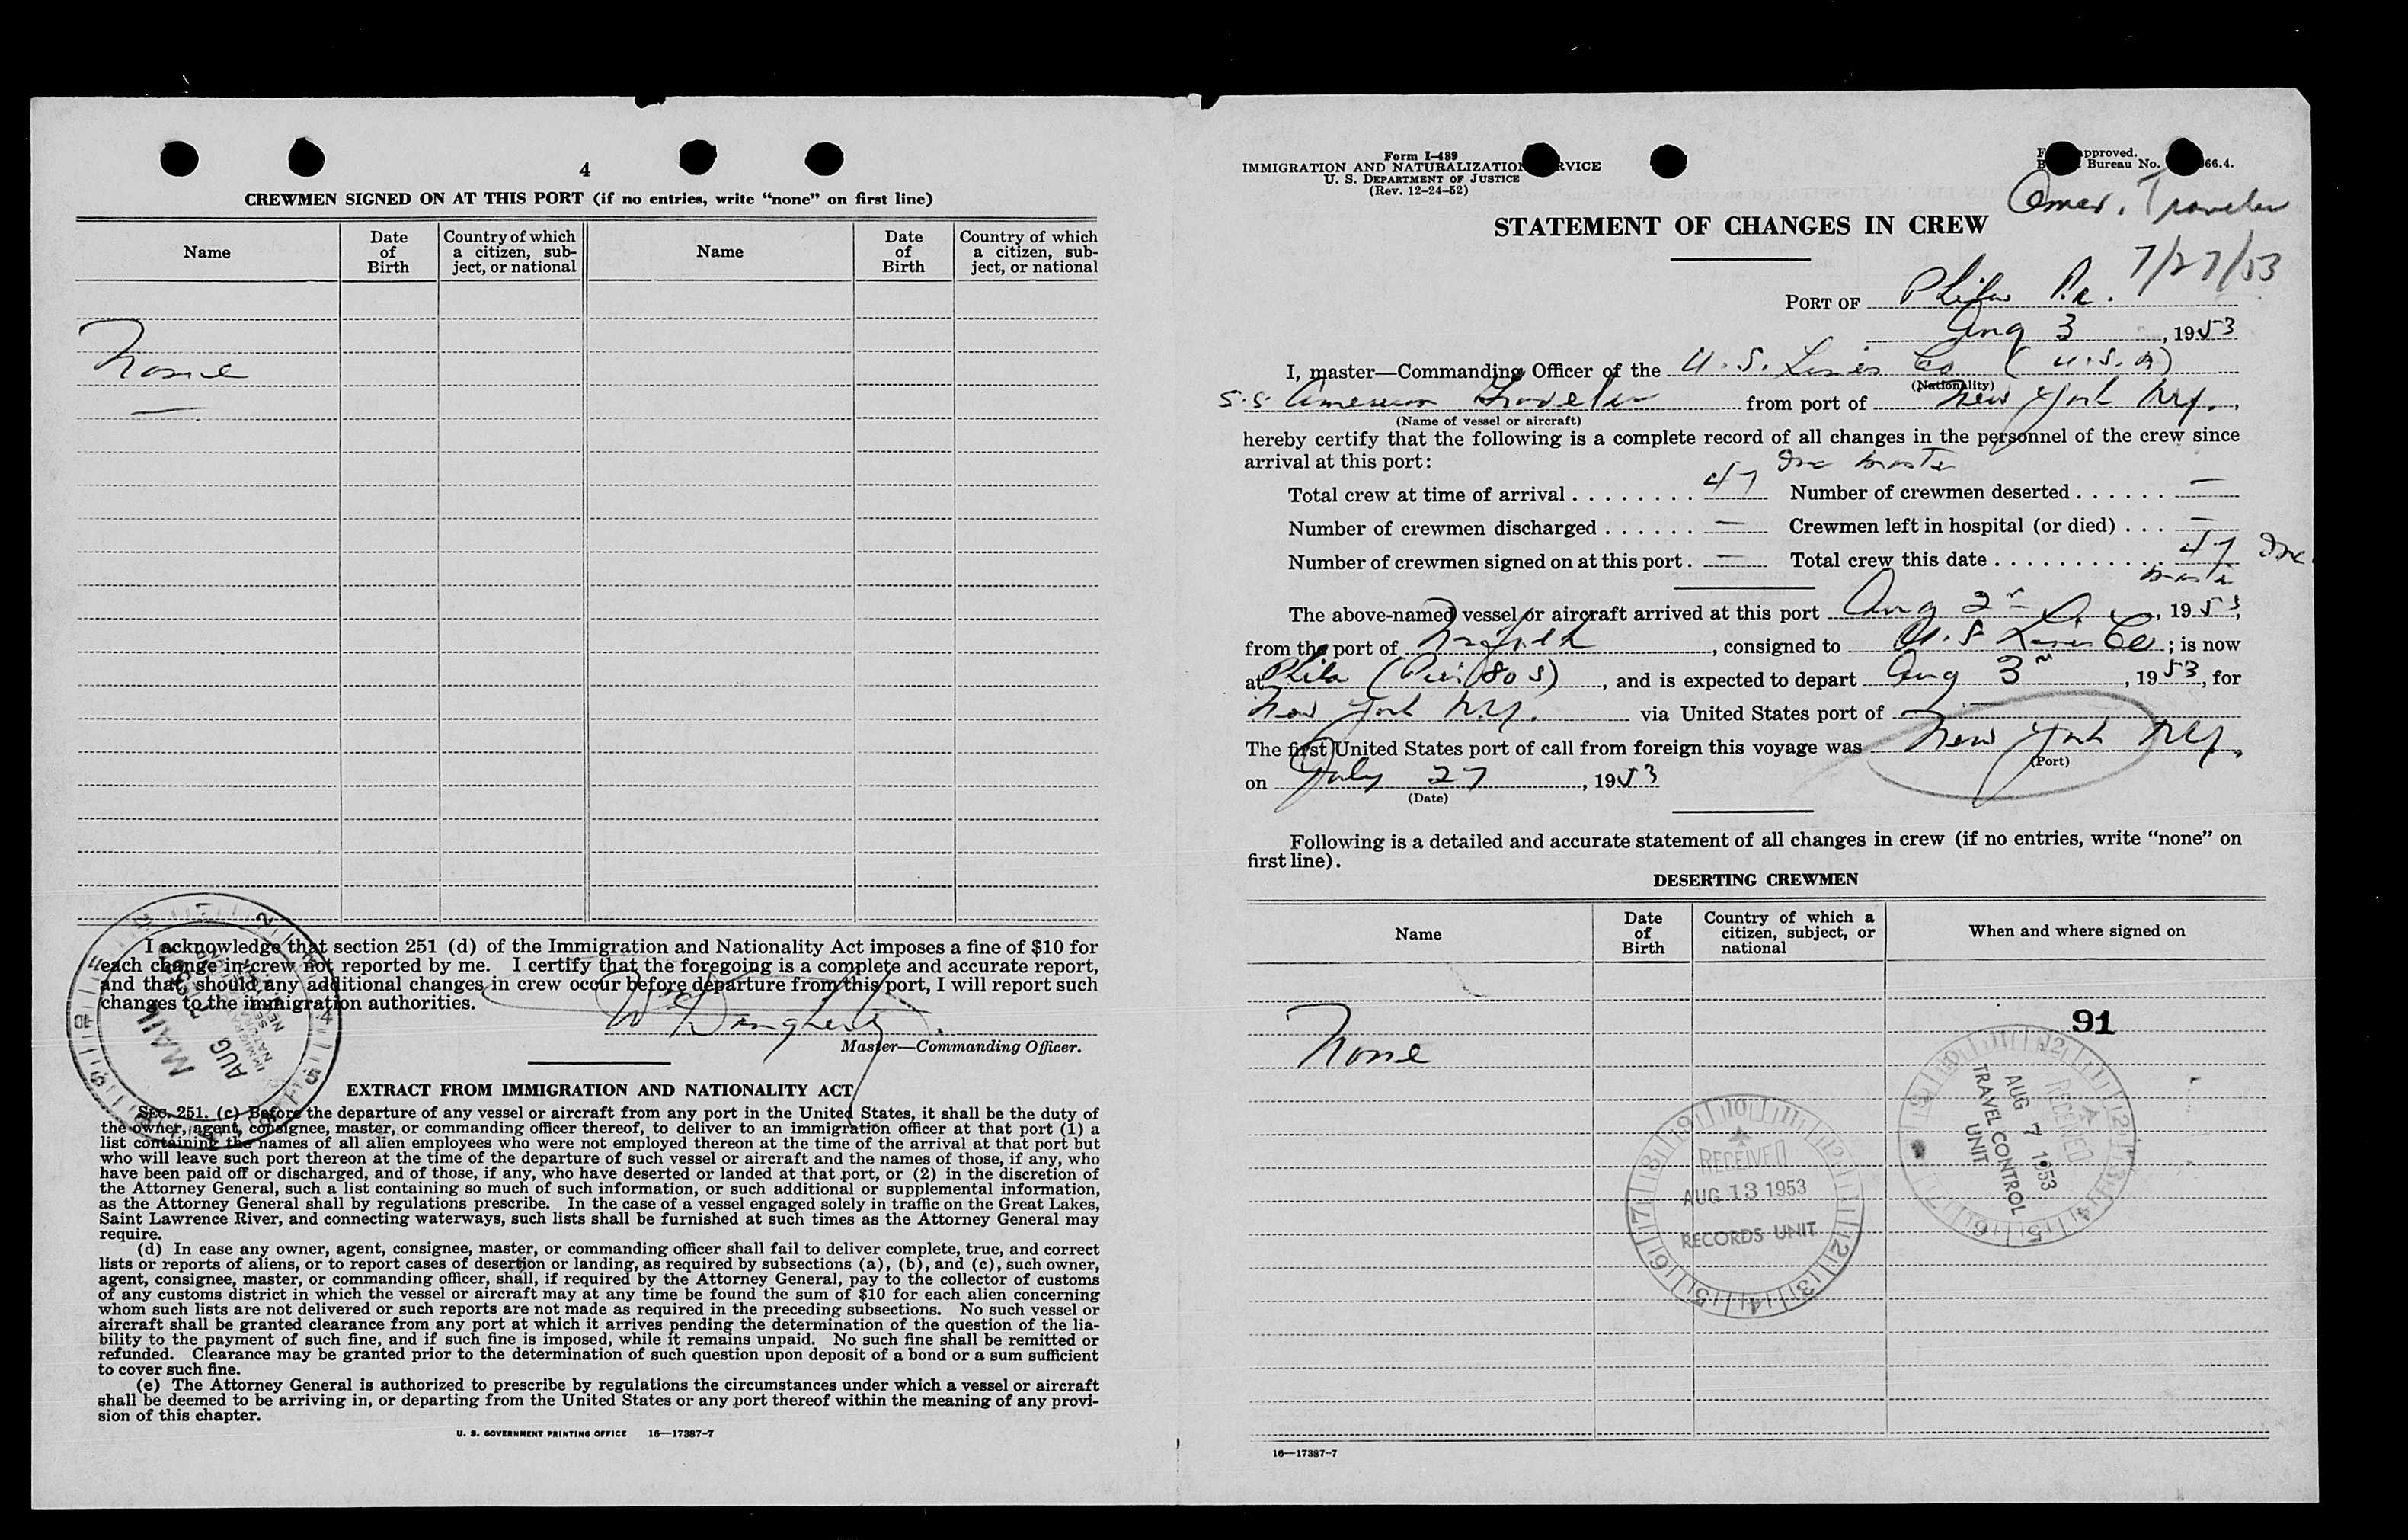 4
CREWMEN SIGNED ON AT THIS PORT (if no entries, write “none” on first line)
Name
Date of Birth
Country of which a citizen, subject, or national
Name
Date of Birth
Country of which a citizen, subject, or national
None
I acknowledge that section 251 (d) of the Immigration and Nationality Act imposes a fine of $10 for
each change in crew not reported by me. I certify that the foregoing is a complete and accurate report,
and that should any additional changes in crew occur before departure from this port, I will report such
changes to the immigration authorities.
Master—Commanding Officer.
MAIL
AUG
EXTRACT FROM IMMIGRATION AND NATIONALITY ACT
SEC. 251. (c) Before the departure of any vessel or aircraft from any port in the United States, it shall be the duty of
the owner, agent, consignee, master, or commanding officer thereof, to deliver to an immigration officer at that port (1) a
list containing the names of all alien employees who were not employed thereon at the time of the arrival at that port but
who will leave such port thereon at the time of the departure of such vessel or aircraft and the names of those, if any, who
have been paid off or discharged, and of those, if any, who have deserted or landed at that port, or (2) in the discretion of
the Attorney General, such a list containing so much of such information, or such additional or supplemental information,
as the Attorney General shall by regulations prescribe. In the case of a vessel engaged solely in traffic on the Great Lakes,
Saint Lawrence River, and connecting waterways, such lists shall be furnished at such times as the Attorney General may
require.
(d) In case any owner, agent, consignee, master, or commanding officer shall fail to deliver complete, true, and correct
lists or reports of aliens, or to report cases of desertion or landing, as required by subsections (a), (b), and (c), such owner,
agent, consignee, master, or commanding officer, shall, if required by the Attorney General, pay to the collector of customs
of any customs district in which the vessel or aircraft may at any time be found the sum of $10 for each alien concerning
whom such lists are not delivered or such reports are not made as required in the preceding subsections. No such vessel or
aircraft shall be granted clearance from any port at which it arrives pending the determination of the question of the lia-
bility to the payment of such fine, and if such fine is imposed, while it remains unpaid. No such fine shall be remitted or
refunded. Clearance may be granted prior to the determination of such question upon deposit of a bond or a sum sufficient
to cover such fine.
(e) The Attorney General is authorized to prescribe by regulations the circumstances under which a vessel or aircraft
shall be deemed to be arriving in, or departing from the United States or any port thereof within the meaning of any provi-
sion of this chapter.
U. S. GOVERNMENT PRINTING OFFICE 16—17387-7
Form I-489
IMMIGRATION AND NATURALIZATION SERVICE
U. S. DEPARTMENT OF JUSTICE
(Rev. 12-24-52)
approved.
Bureau No. 66.4.
Amer. Traveler
7/27/53
STATEMENT OF CHANGES IN CREW
PORT OF Phila Pa.
Aug 3, 1953
I, master—Commanding Officer of the U.S. Lines Co (U.S.A)
(Nationality)
S.S. American Traveler from port of New York N.Y.,
(Name of vessel or aircraft)
hereby certify that the following is a complete record of all changes in the personnel of the crew since
arrival at this port:
Total crew at time of arrival 47 Inc master Number of crewmen deserted —
Number of crewmen discharged — Crewmen left in hospital (or died) —
Number of crewmen signed on at this port — Total crew this date 47 Inc master
The above-named vessel or aircraft arrived at this port Aug 2, 1953,
from the port of Norfolk, consigned to U.S Lines Co; is now
at Phila (Pier 80 S), and is expected to depart Aug 3, 1953, for
New York N.Y. via United States port of —
The first United States port of call from foreign this voyage was New York N.Y.
(Port)
on July 27, 1953
(Date)
Following is a detailed and accurate statement of all changes in crew (if no entries, write “none” on
first line).
DESERTING CREWMEN
Name
Date of Birth
Country of which a citizen, subject, or national
When and where signed on
None
91
RECEIVED
AUG 7 1953
TRAVEL CONTROL
UNIT
RECEIVED
AUG 13 1953
RECORDS UNIT
16—17387-7